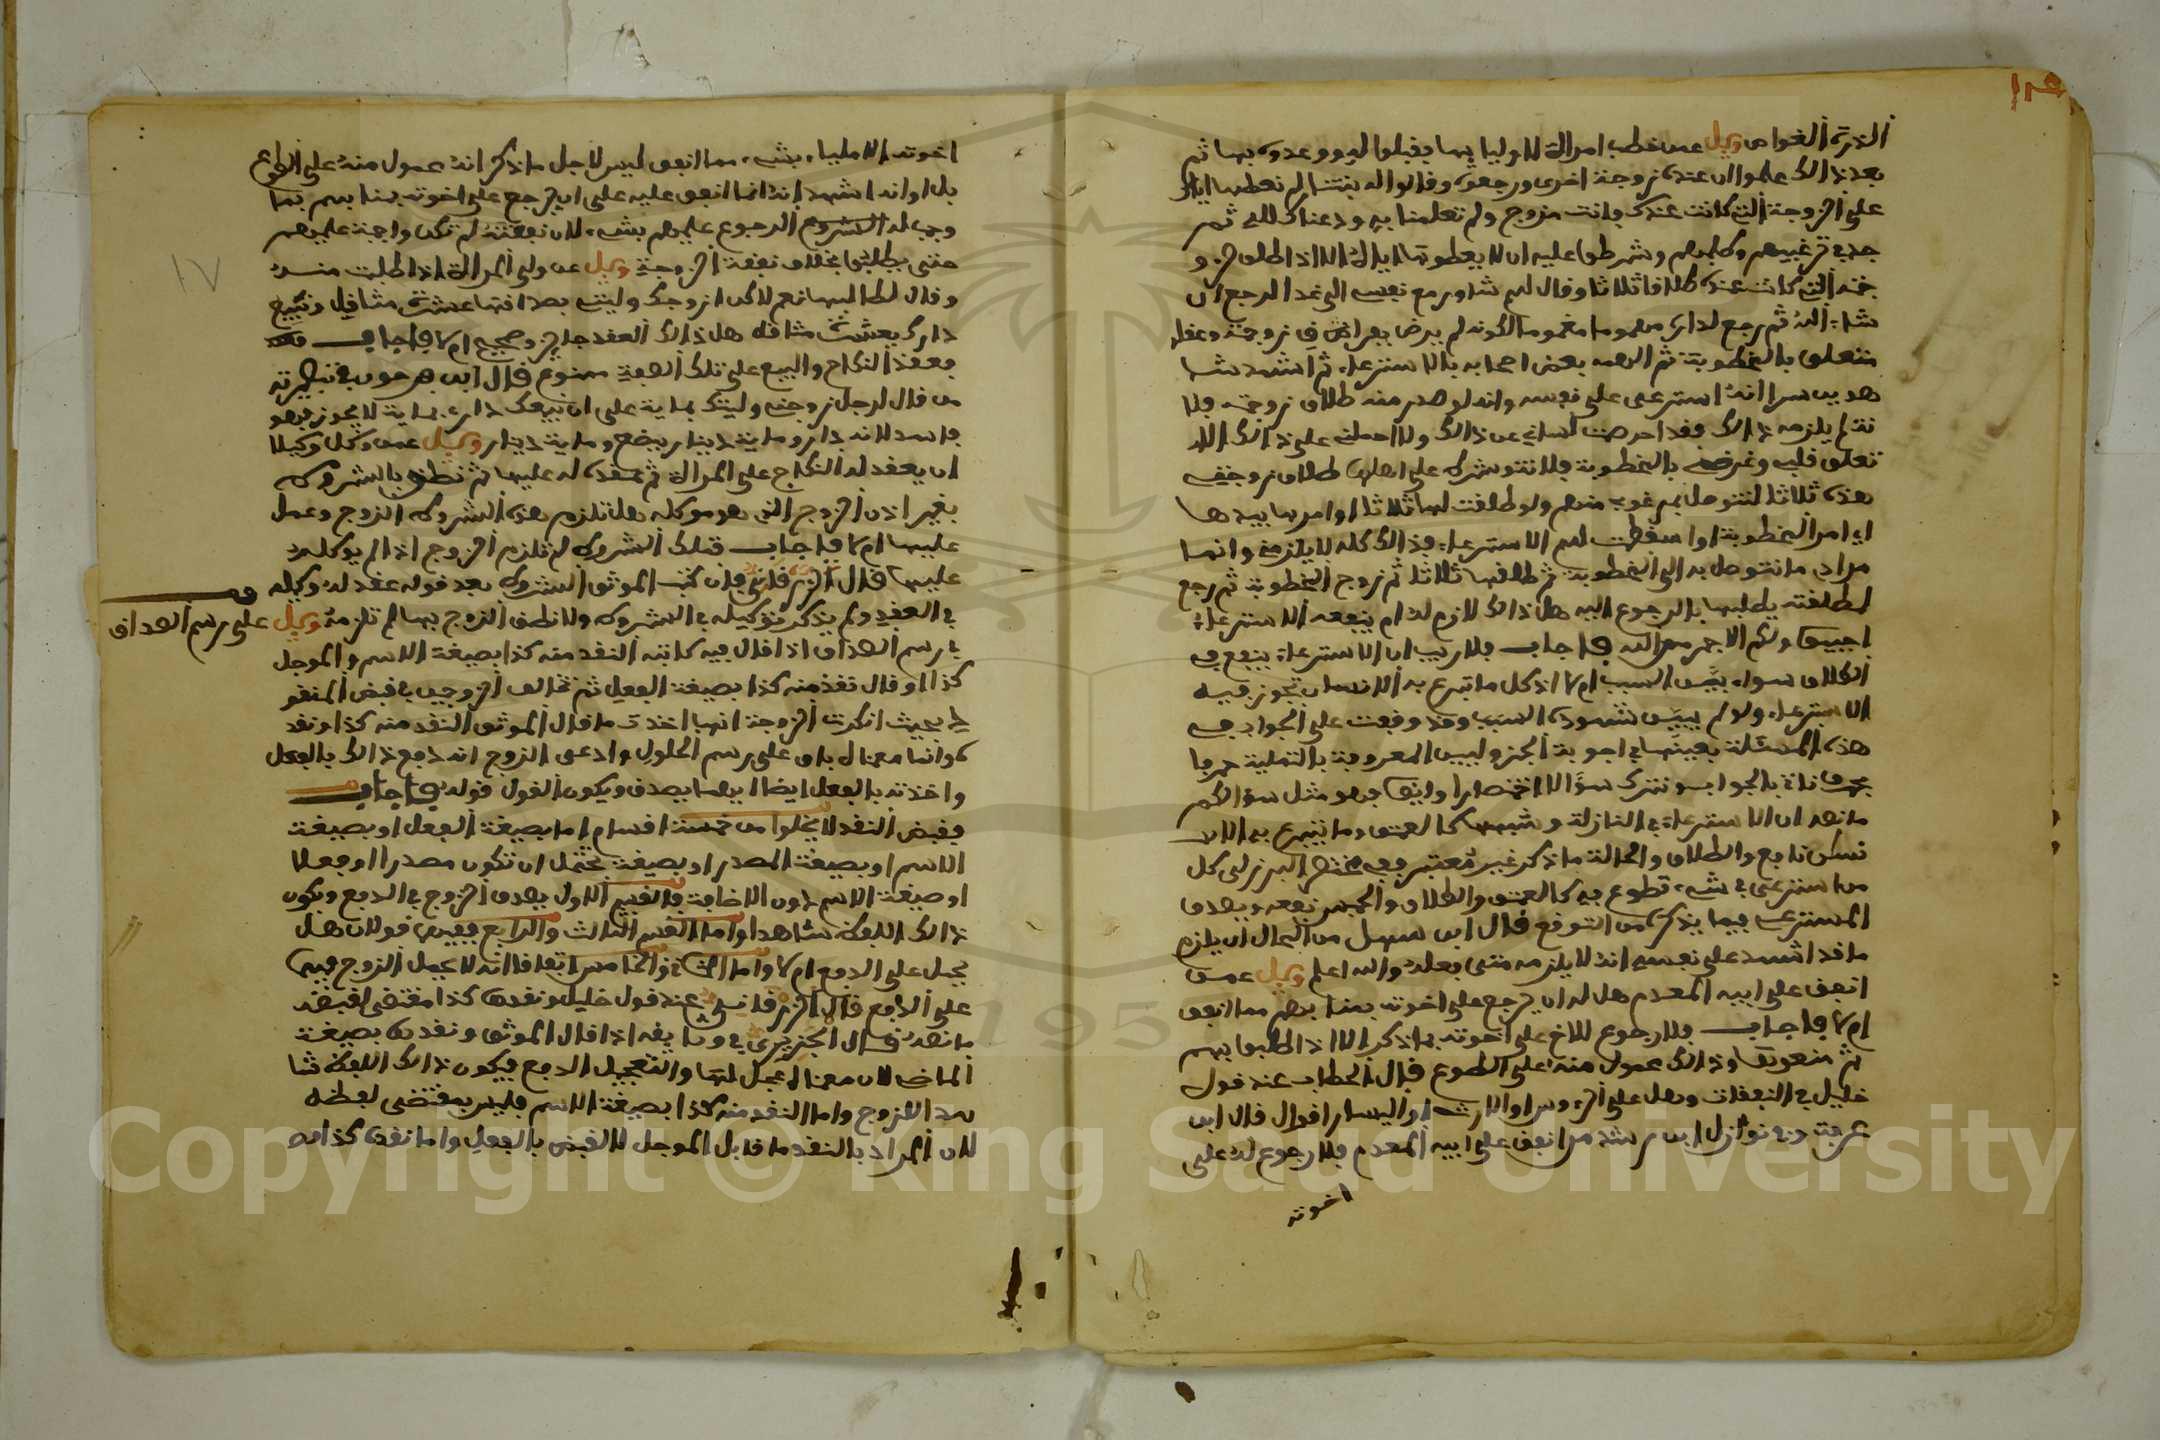 الدرة الغواص وسئل عمن خطب امراة لاوليايها فقبلوا له ووعدوه بها ثم
بعد ذالك علموا ان عنده زوجة اخرى ورجعوا وقالوا له بنتنا لم نعطها اياك
على الزوجة التي كانت عندك وانت مزوج ولم تعلمنا به ودعناك لله ثم
جد في ترغيبهم وكلمهم وشرطوا عليه ان لا يعطوها اياه الا اذا طلق
التي كانت عنده طلاقا ثلاثا وقال لهم شاور مع نفسه الى غد ان
شاء الله ثم رجع لداره مهموما مغموما لكونه لم يرض بفراق زوجته وعقله
متعلق بالمخطوبة ثم الهمه بعض اصحابه بالاسترعاء ثم اشهد شا
هدين سرا انه استرعى على نفسه وانه لو صدر منه طلاق زوجته فلا
يلزمه ذالك فقد احرصت لساني عن ذالك ولا احملني على ذالك الا
تعلق قلبي وغرضي بالمخطوبة طلاق زوجتي
هذه ثلاثا لنتوصل بمرغوبي منهم ولو طلقت لها ثلاثا او امرها بيدها
اي امر المخطوبة او اسقطت لهم الاسترعاء فذالك كله لا يلزمني وانما
مرادي ما نتوصل به الى المخطوبة ثم طلقها ثلاثا ثم زوج المخطوبة ثم رجع
لمطلقته يطلبها بالرجوع اليه هل ذالك لازم له ام ينفعه الاسترعاء
اجيبوا ولكم الاجر من الله فاجاب فلا ريب ان الاسترعاء ينفع في
الطلاق سواء بين السبب ام لا اذ كل ما تبرع به الانسان يجوز فيه
الاسترعاء ولو لم يبين شهوده السبب وقد وقعت على الجواب في
هذه المسئلة بعينها في اجوبة الجزولي المعروفة بالتملية حرفا
بحرف بالجواب ونترك سؤالا اختصارا وايضا فهو مثل سؤالكم
ما نصه ان الاسترعاء في النازلة وشبهها كالعتق وما يتبرع به الا
نسان نافع والطلاق والحالة ما ذكر غير معتبر ففي مختصر البرزلي كل
من استرعى في شيء تطوع به كالعتق والطلاق والحبس نفعه ويصدق
المسترعي فيما يذكره من التوقع قال ابن سهل من المحال ان يلزم
ما قد اشهد على نفسه انه لا يلزمه متى فعله والله اعلم وسئل عمن
انفق على ابيه المعدم هل له ان يرجع على اخوته بمنابهم مما انفق
ام لا فاجاب فلا رجوع للاخ على اخوته بما ذكر الا اذا طلبوا بهم
ثم منعوها وذالك محمول منه على الطوع قال الحطاب عند قول
خليل في النفقات وهل على الرءوس او الارث او اليسار اقوال قال ابن
عرفة وفي نوازل ابن رشد من انفق على ابيه المعدم فلا رجوع له على
اخوته
اخوته الاملياء بشيء مما انفق ليس لاجل ما ذكر انه محمول منه على الطوع
بل او انه اشهد انه انما انفق عليه على ان يرجع على اخوته بمنابهم لما
وجب له الرجوع عليهم بشيء لان نفقته لم تكن واجبة عليهم
حتى يطلبها بخلاف نفقة الزوجة وسئل عن ولي المراة اذا طلبت منه
وقال لطالبها نعم لاكن ازوجك وليتي بصداقها عشرة مثاقيل ونبيع
دارك بعشرة مثاقله هل ذالك العقد جايز وصحيح ام لا فاجاب
فعقد النكاح والبيع على تلك الصفة ممنوع قال ابن فرحون في تبصرته
من قال لرجل زوجني وليتك بماية على ان نبيعك داري بماية لا يجوز فهو
فاسد لانه دار وماية دينار ببضع وماية دينار وسئل عمن وكل وكيلا
ان يعقد له النكاح على المراة ثم عقده له عليها ثم نطق بالشروط
بغير اذن الزوج الذي هو موكله هل تلزم هذه الشروط الزوج وعمل
عليها ام لا فاجاب فتلك الشروط لم تلزم الزوج اذا لم يوكله
عليها قال الزرقاني فان كتب الموثق الشروط بعد قوله عقد له وكيله
في العقد ولم يذكر توكيله في الشروط ولا نطق الزوج بها لم تلزمه وسئل على رسم الصداق
في رسم الصداق اذا قال فيه كاتبه النقد منه كذا بصيغة الاسم والموجل
كذا او قال نقد منه كذا بصيغة الفعل ثم تخالف الزوجين في قبض المنقو
د بحيث انكرت الزوجة انها اخذت ما قال الموثق النقد منه كذا ونقد
كوانما معناه باق على رسم الحلول وادعى الزوج انه دفع ذالك بالفعل
واخذته بالفعل ايضا ايهما يصدق ويكون القول قوله فاجاب
فقبض النقد لا يخلوا من خمسة اقسام اما بصيغة الفعل او بصيغة
الاسم او بصيغة المصدر او بصيغة تحتمل ان تكون مصدرا او فعلا
او صيغة الاسم دون الاضافة فالقسم الاول يصدق الزوج في الدفع وتكون
ذالك اللفظة شاهدا واما القسم الثالث والرابع ففيهن قولان هل
يحمل على الدفع ام لا واما الثاني والخامس اتفاقا انه لا يحمل الزوج فيهما
على الدفع قال الزرقاني عند قول خليل ونقدها كذا مقتضى لقبضه
ما نصه قال الجزيري في وثايقه اذا قال الموثق ونقدها بصيغة
الماضي لان معناه عجل لها والتعجيل الدفع فيكون ذالك اللفظ شا
هدا للزوج واما النقد منه كذا بصيغة الاسم فليس بمقتضى لقبضه
لان المراد بالنقد ما قابل الموجل لا القبض بالفعل واما نقده كذا